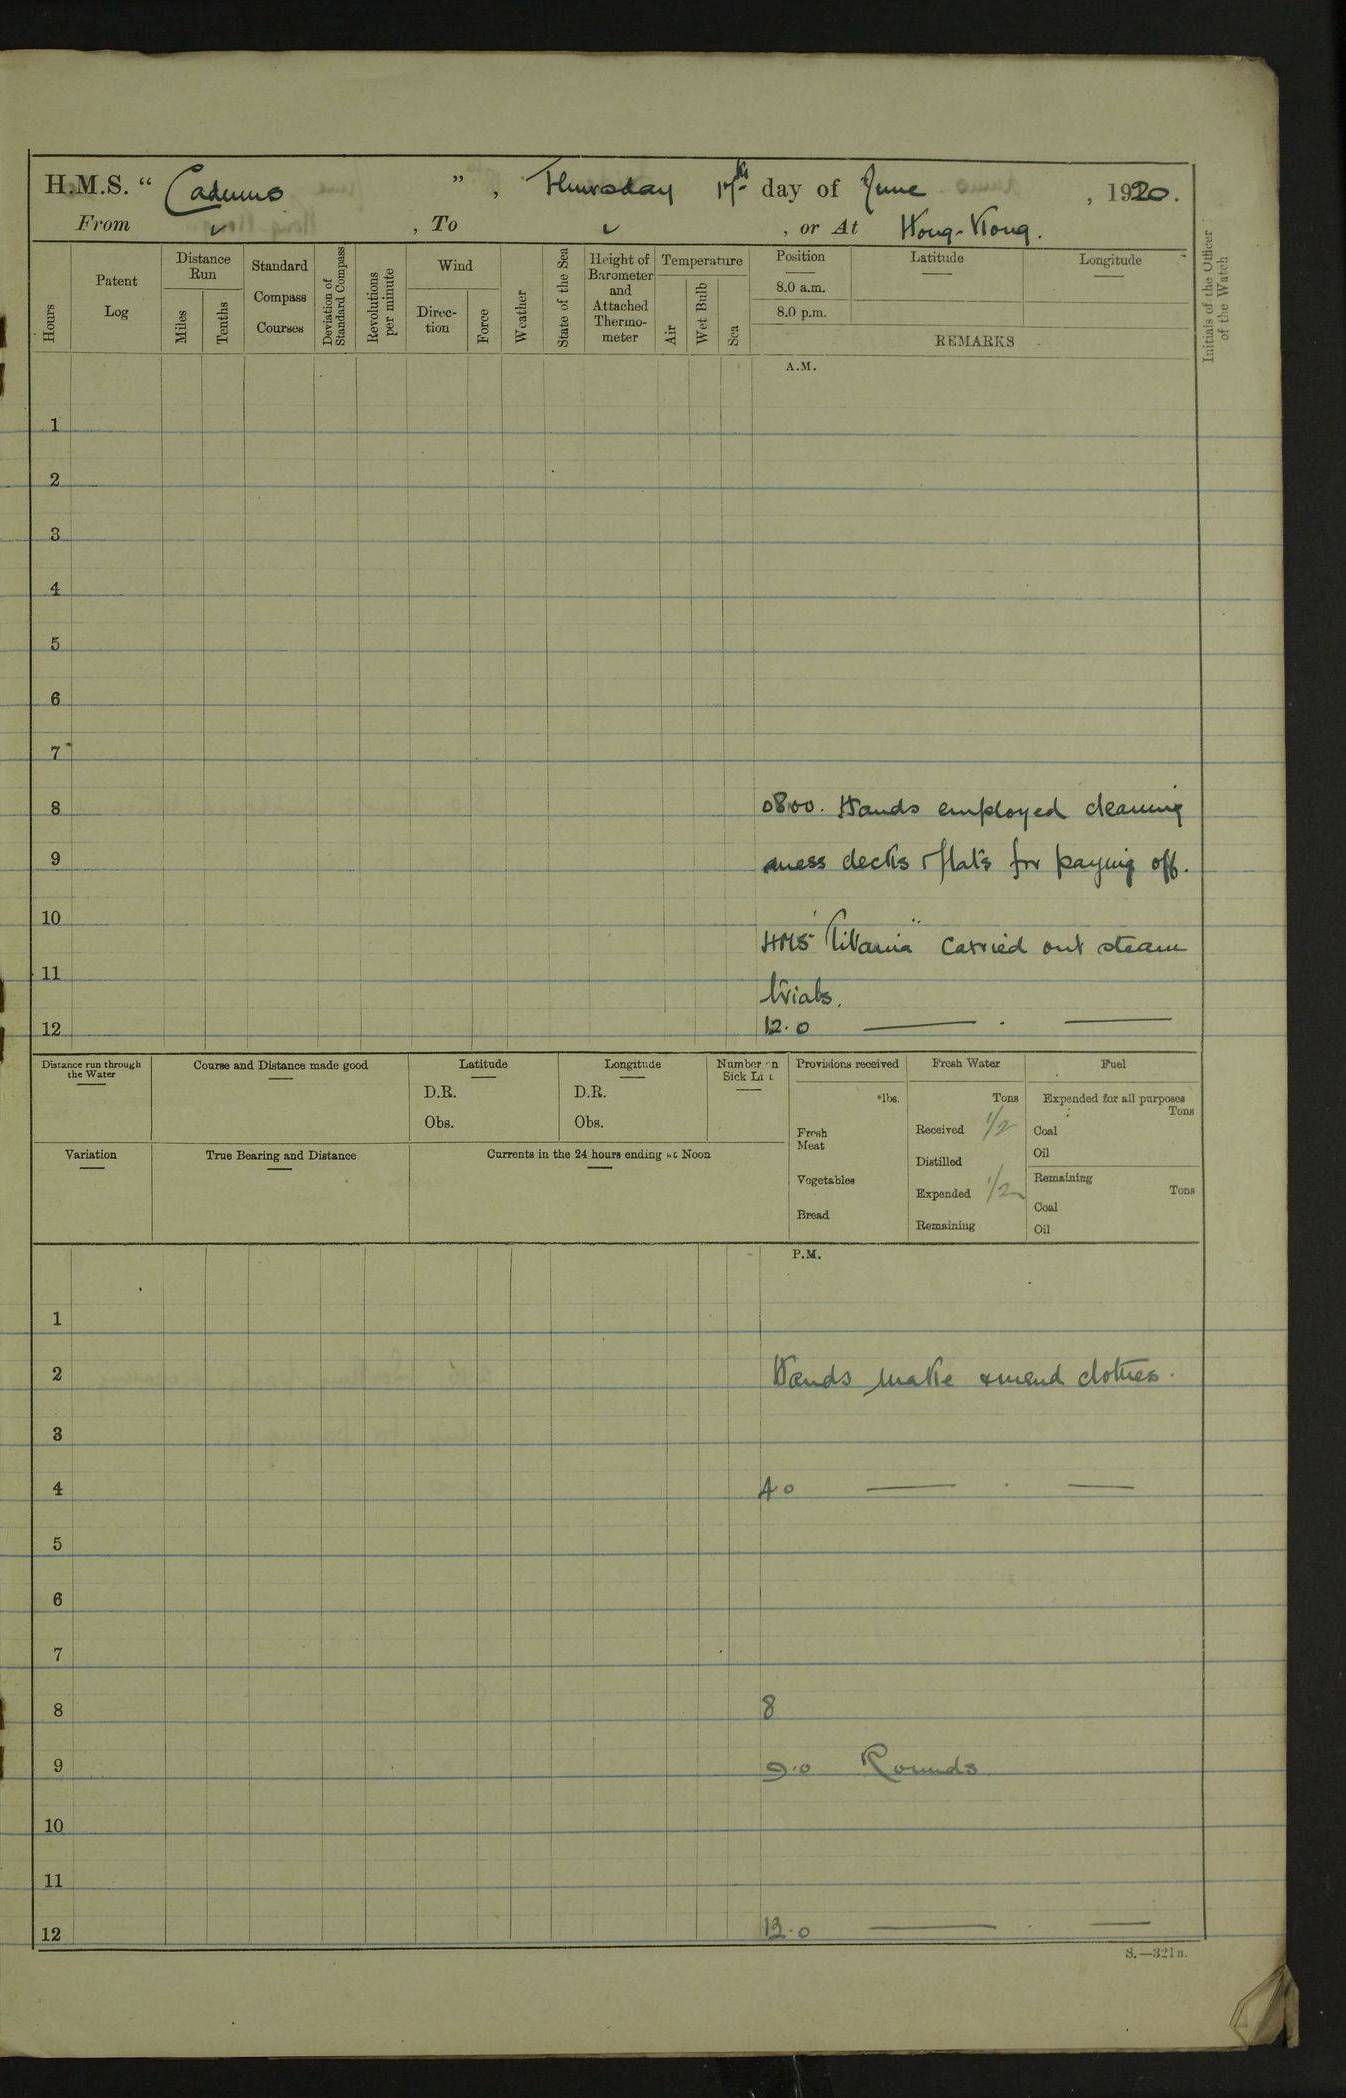 H.M.S. “ Cadmus ” , Thursday 17th day of June , 1920.
From ✓ , To ✓ , or At Hong-Kong.
Hours
Patent Log
Distance Run
Miles
Tenths
Standard Compass Courses
Deviation of Standard Compass
Revolutions per minute
Wind
Direc- tion
Force
Weather
State of the Sea
Height of Barometer and Attached Thermo- meter
Temperature
Air
Wet Bulb
Sea
Position
8.0 a.m.
8.0 p.m.
Latitude
Longitude
REMARKS
Initials of the Officer of the Watch
A.M.
1
2
3
4
5
6
7
8 0800. Hands employed cleaning
9 mess decks & flats for paying off.
10 HMS "Titania" carried out steam
11 trials.
12 12.0 — . —
Distance run through the Water
Course and Distance made good
Latitude
D.R.
Obs.
Longitude
D.R.
Obs.
Number on Sick List
Variation
True Bearing and Distance
Currents in the 24 hours ending at Noon
Provisions received
*lbs.
Fresh Meat
Vegetables
Bread
Fresh Water
Tons
Received 1/2
Distilled
Expended 1/2
Remaining
Fuel
Expended for all purposes
Tons
Coal
Oil
Remaining
Tons
Coal
Oil
P.M.
1
2 Hands make & mend clothes.
3
4 4.0 — . —
5
6
7
8 8
9 9.0 Rounds
10
11
12 12.0 — . —
S.—321a.